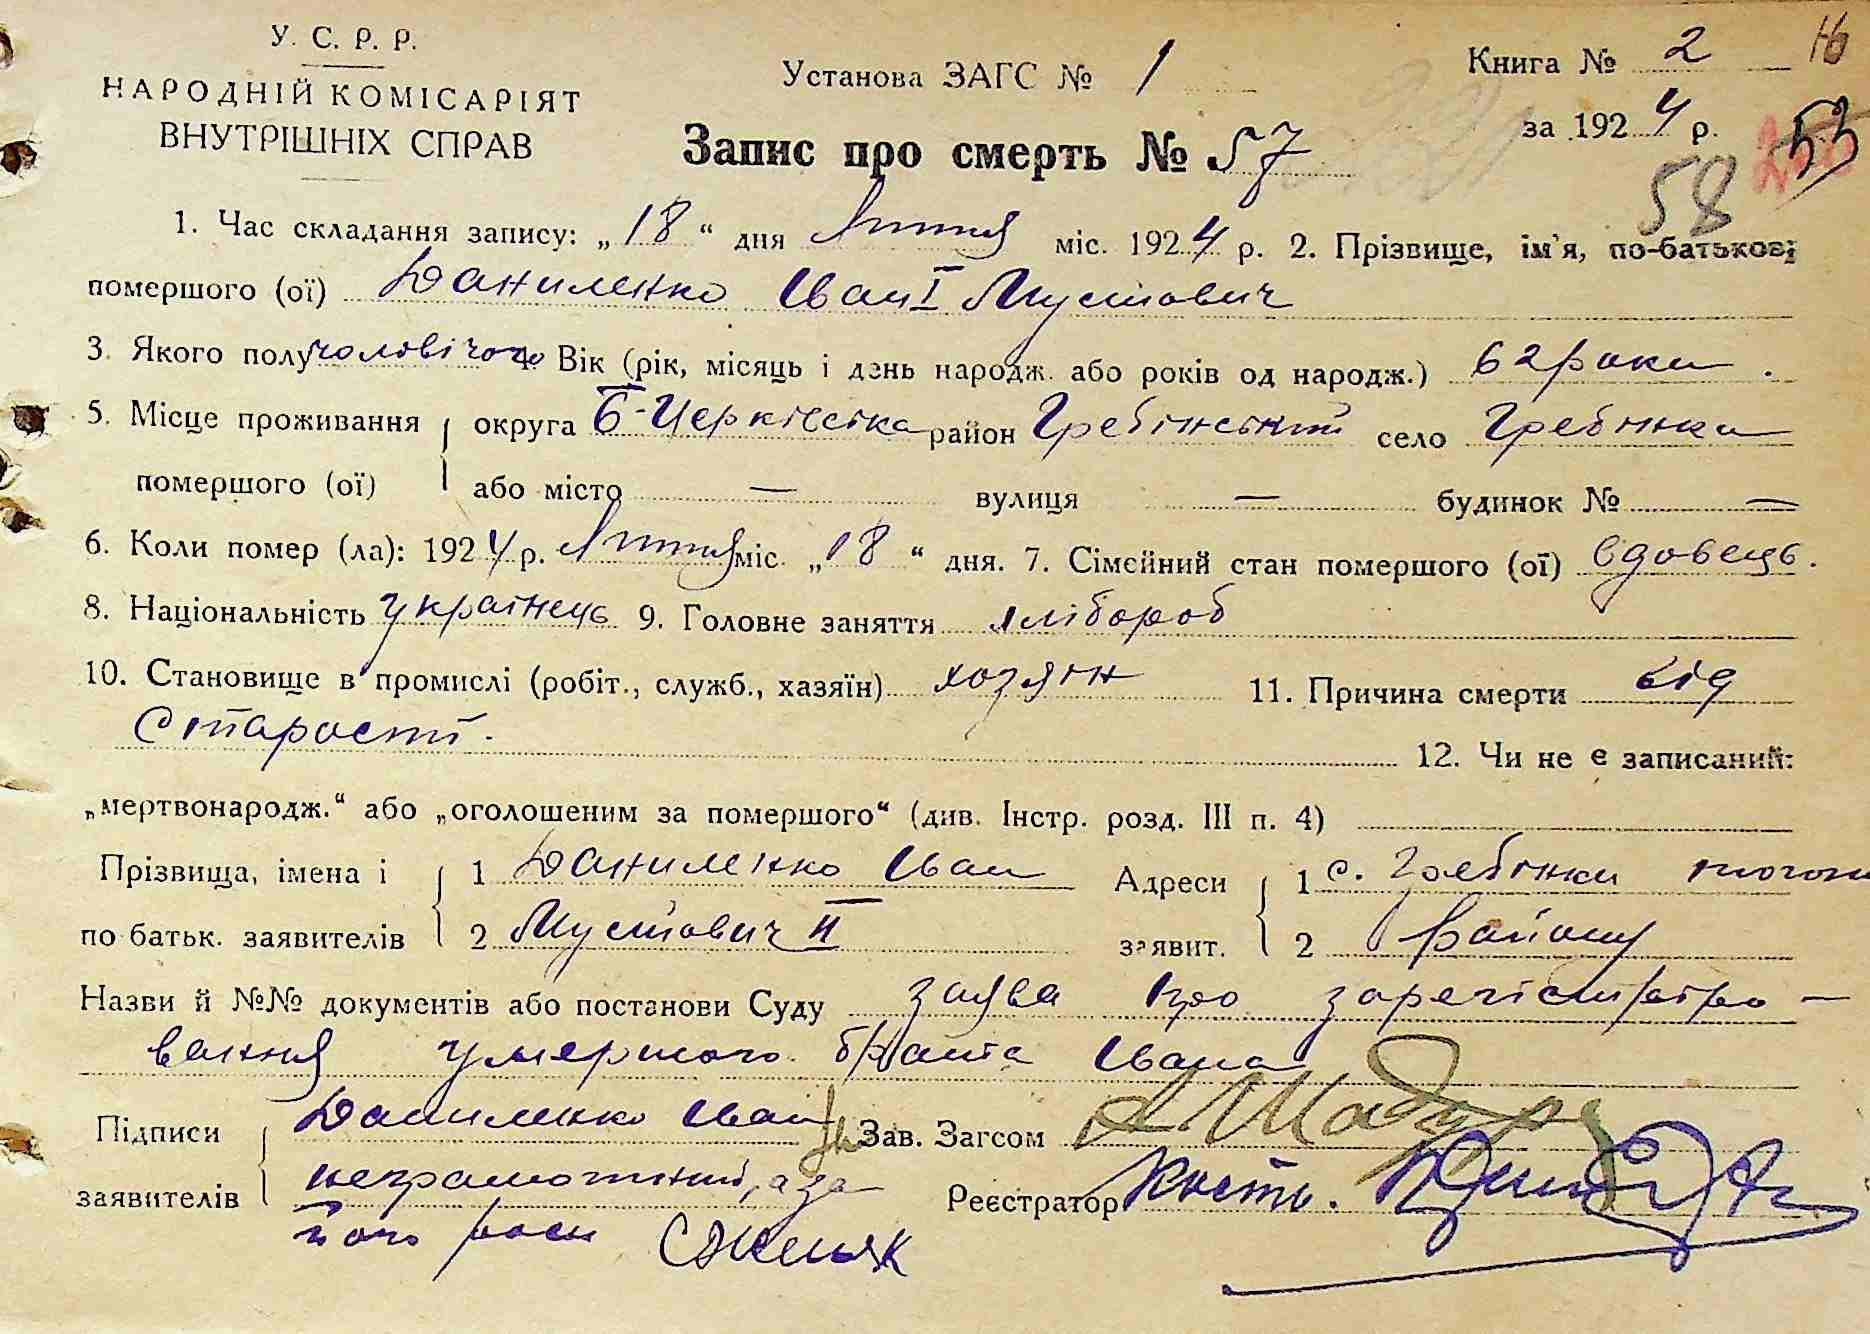 У. С. Р. Р.
НАРОДНІЙ КОМІСАРІЯТ
ВНУТРІШНІХ СПРАВ
Установа ЗАГС № 1
Книга № 2
16
за 1924 р.
53
Запис про смерть № 57
58
1. Час складання запису: „18“ дня Липня міс. 1924 р. 2. Прізвище, ім'я, по-батькові
помершого (ої) Даниленко Іван I Мусійович
3. Якого полу чоловічого 4. Вік (рік, місяць і день народж. або років од народж.) 62 роки.
5. Місце проживання округа Б-Церківська район Гребінський село Гребінка
помершого (ої) або місто — вулиця — будинок № —
6. Коли помер (ла): 1924 р. Липня міс. „18“ дня. 7. Сімейний стан помершого (ої) вдовець.
8. Національність українець 9. Головне заняття хлібороб
10. Становище в промислі (робіт., служб., хазяїн) хозяін 11. Причина смерти від
старости.
12. Чи не є записаний:
„мертвонародж.“ або „оголошеним за помершого“ (див. Інстр. розд. III п. 4)
Прізвища, імена і 1 Даниленко Іван Адреси 1 с. Гребінки того
по батьк. заявителів 2 Мусійович II заявит. 2 району
Назви й №№ документів або постанови Суду заява про зарегістріро-
вання умершого брата Івана
Підписи Даниленко Іван Зав. Загсом
неграмотний, а за
заявителів Реєстратор
його роспи